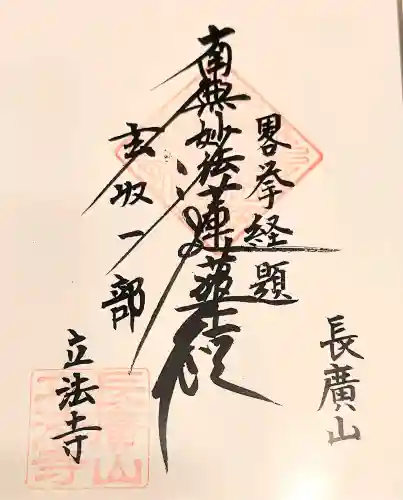 長廣山
畧挙経題
南無妙法蓮華経
玄収一部
立法寺